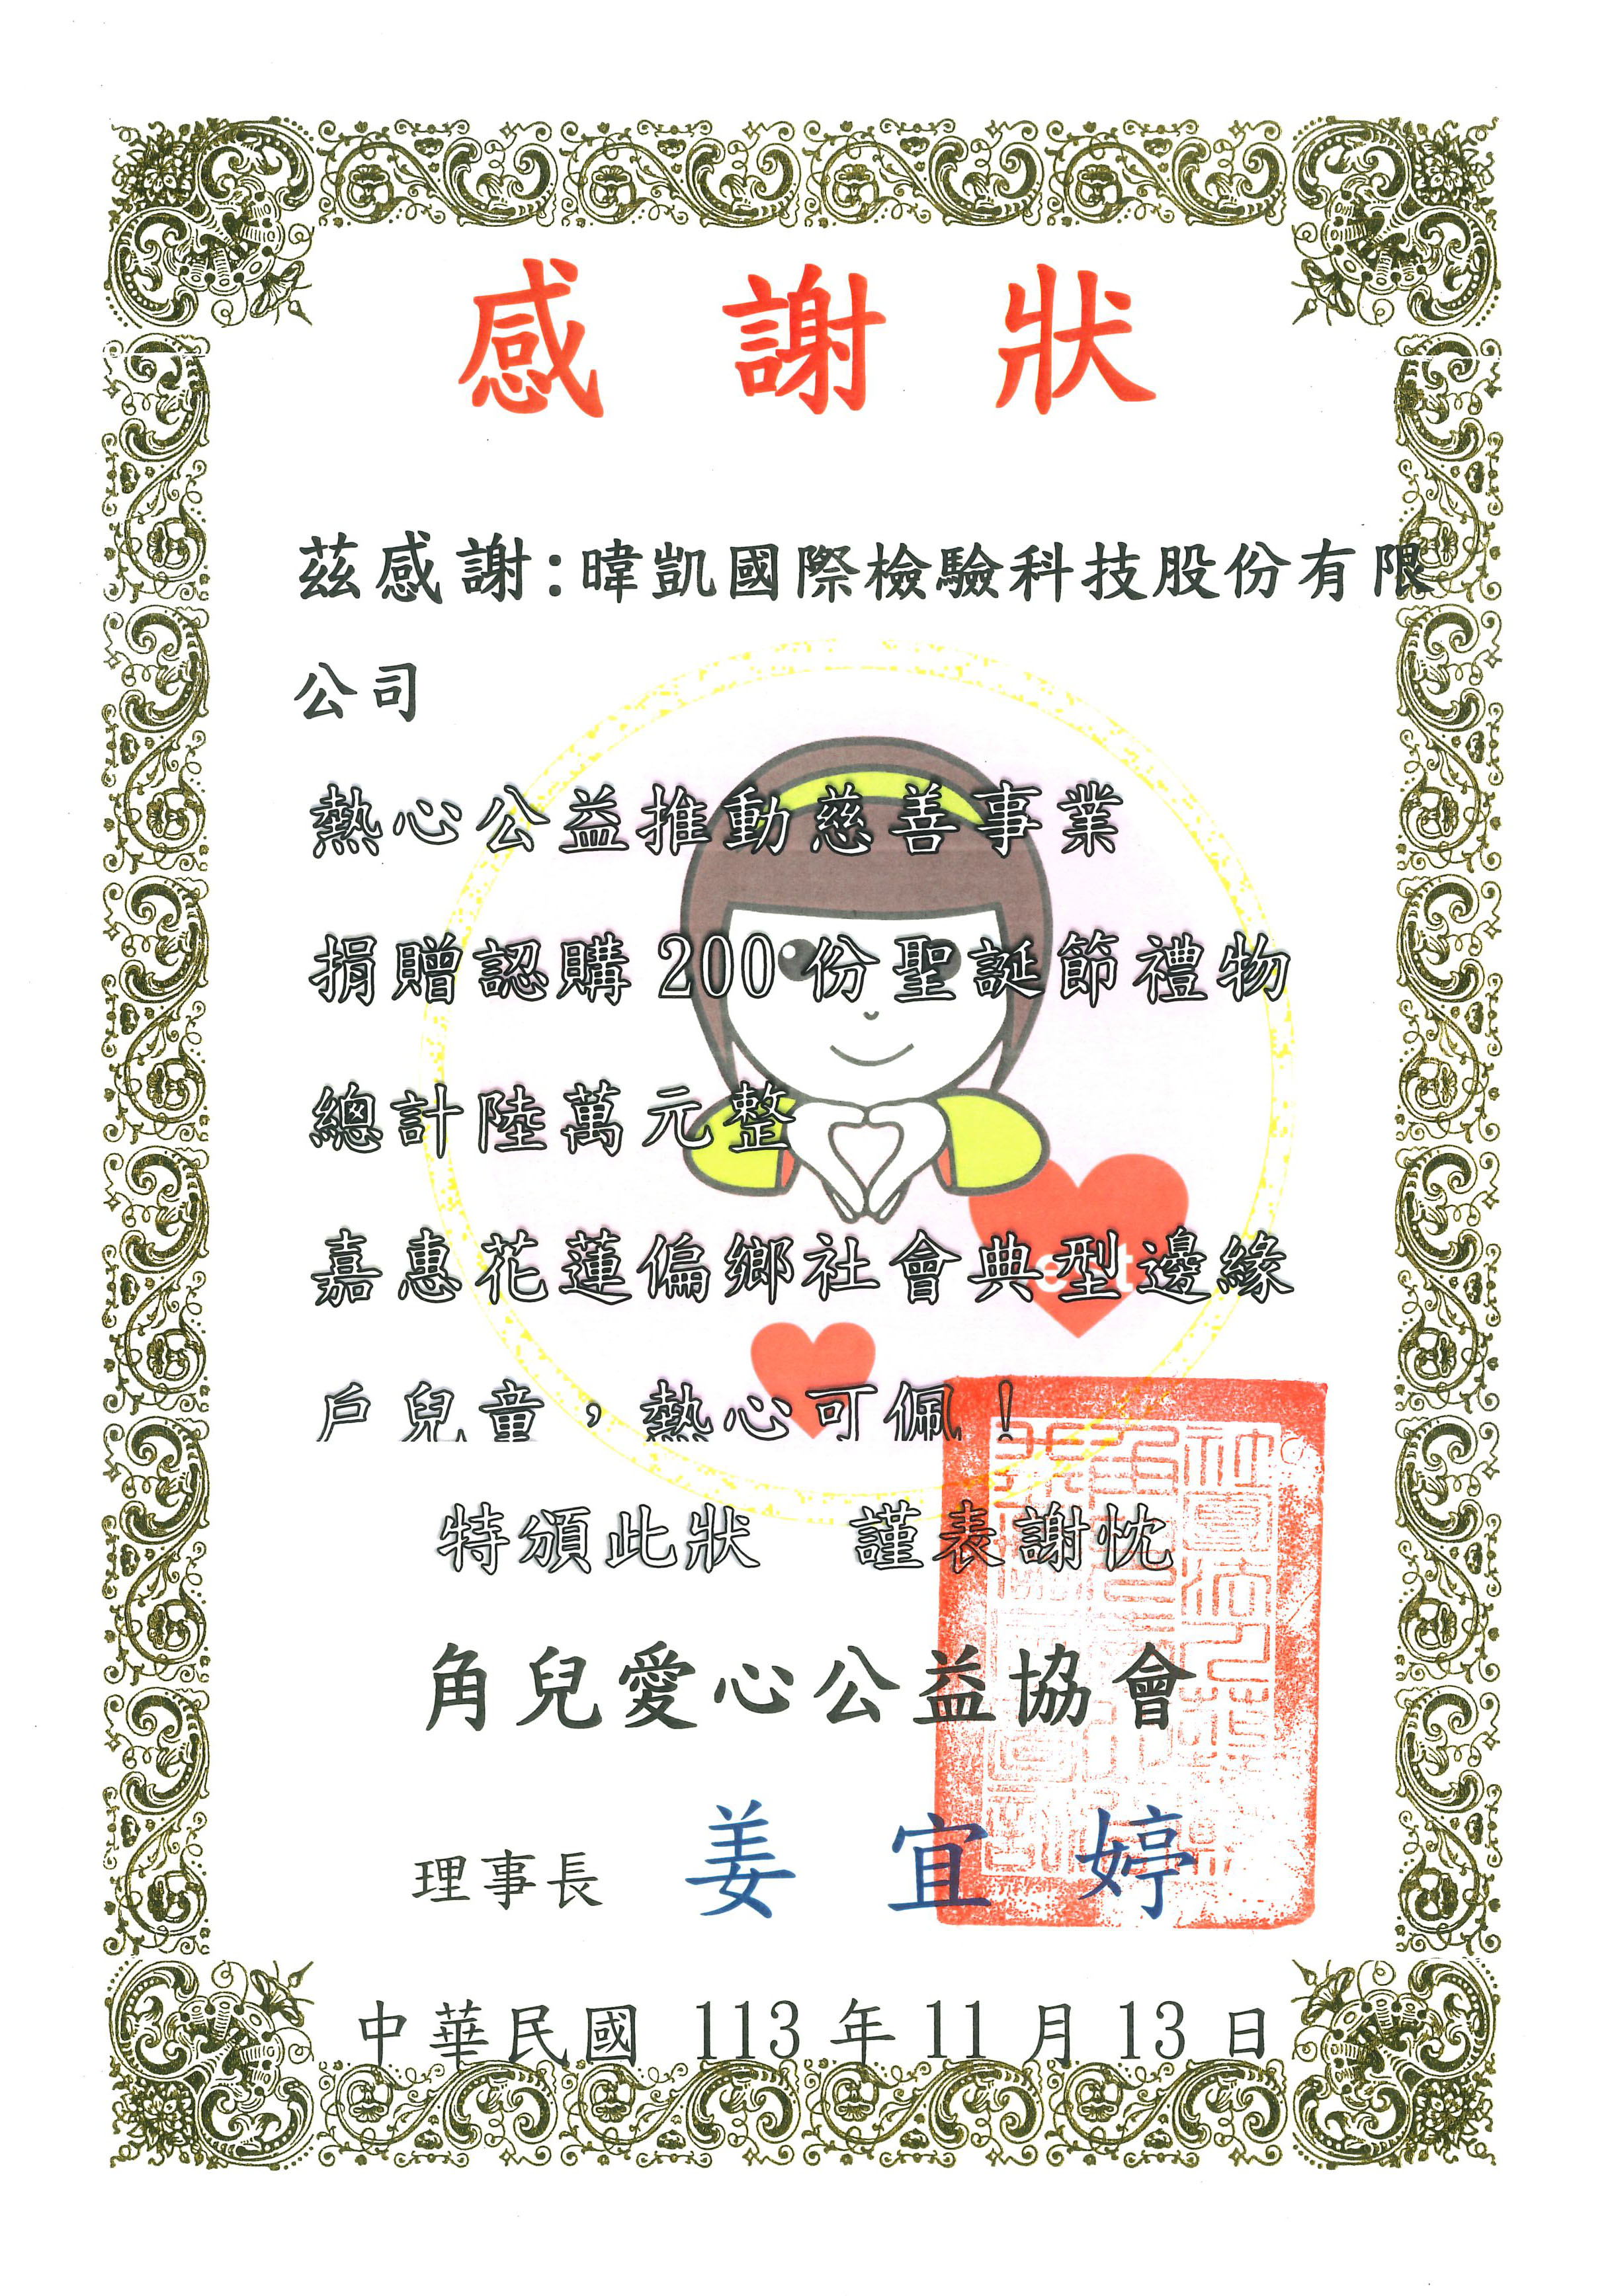 感謝狀
茲感謝:暐凱國際檢驗科技股份有限
公司
熱心公益推動慈善事業
捐贈認購 200 份聖誕節禮物
總計陸萬元整
嘉惠花蓮偏鄉社會典型邊緣
戶兒童，熱心可佩！
特頒此狀 謹表謝忱
角兒愛心公益協會
理事長 姜宜婷
中華民國 113 年 11 月 13 日